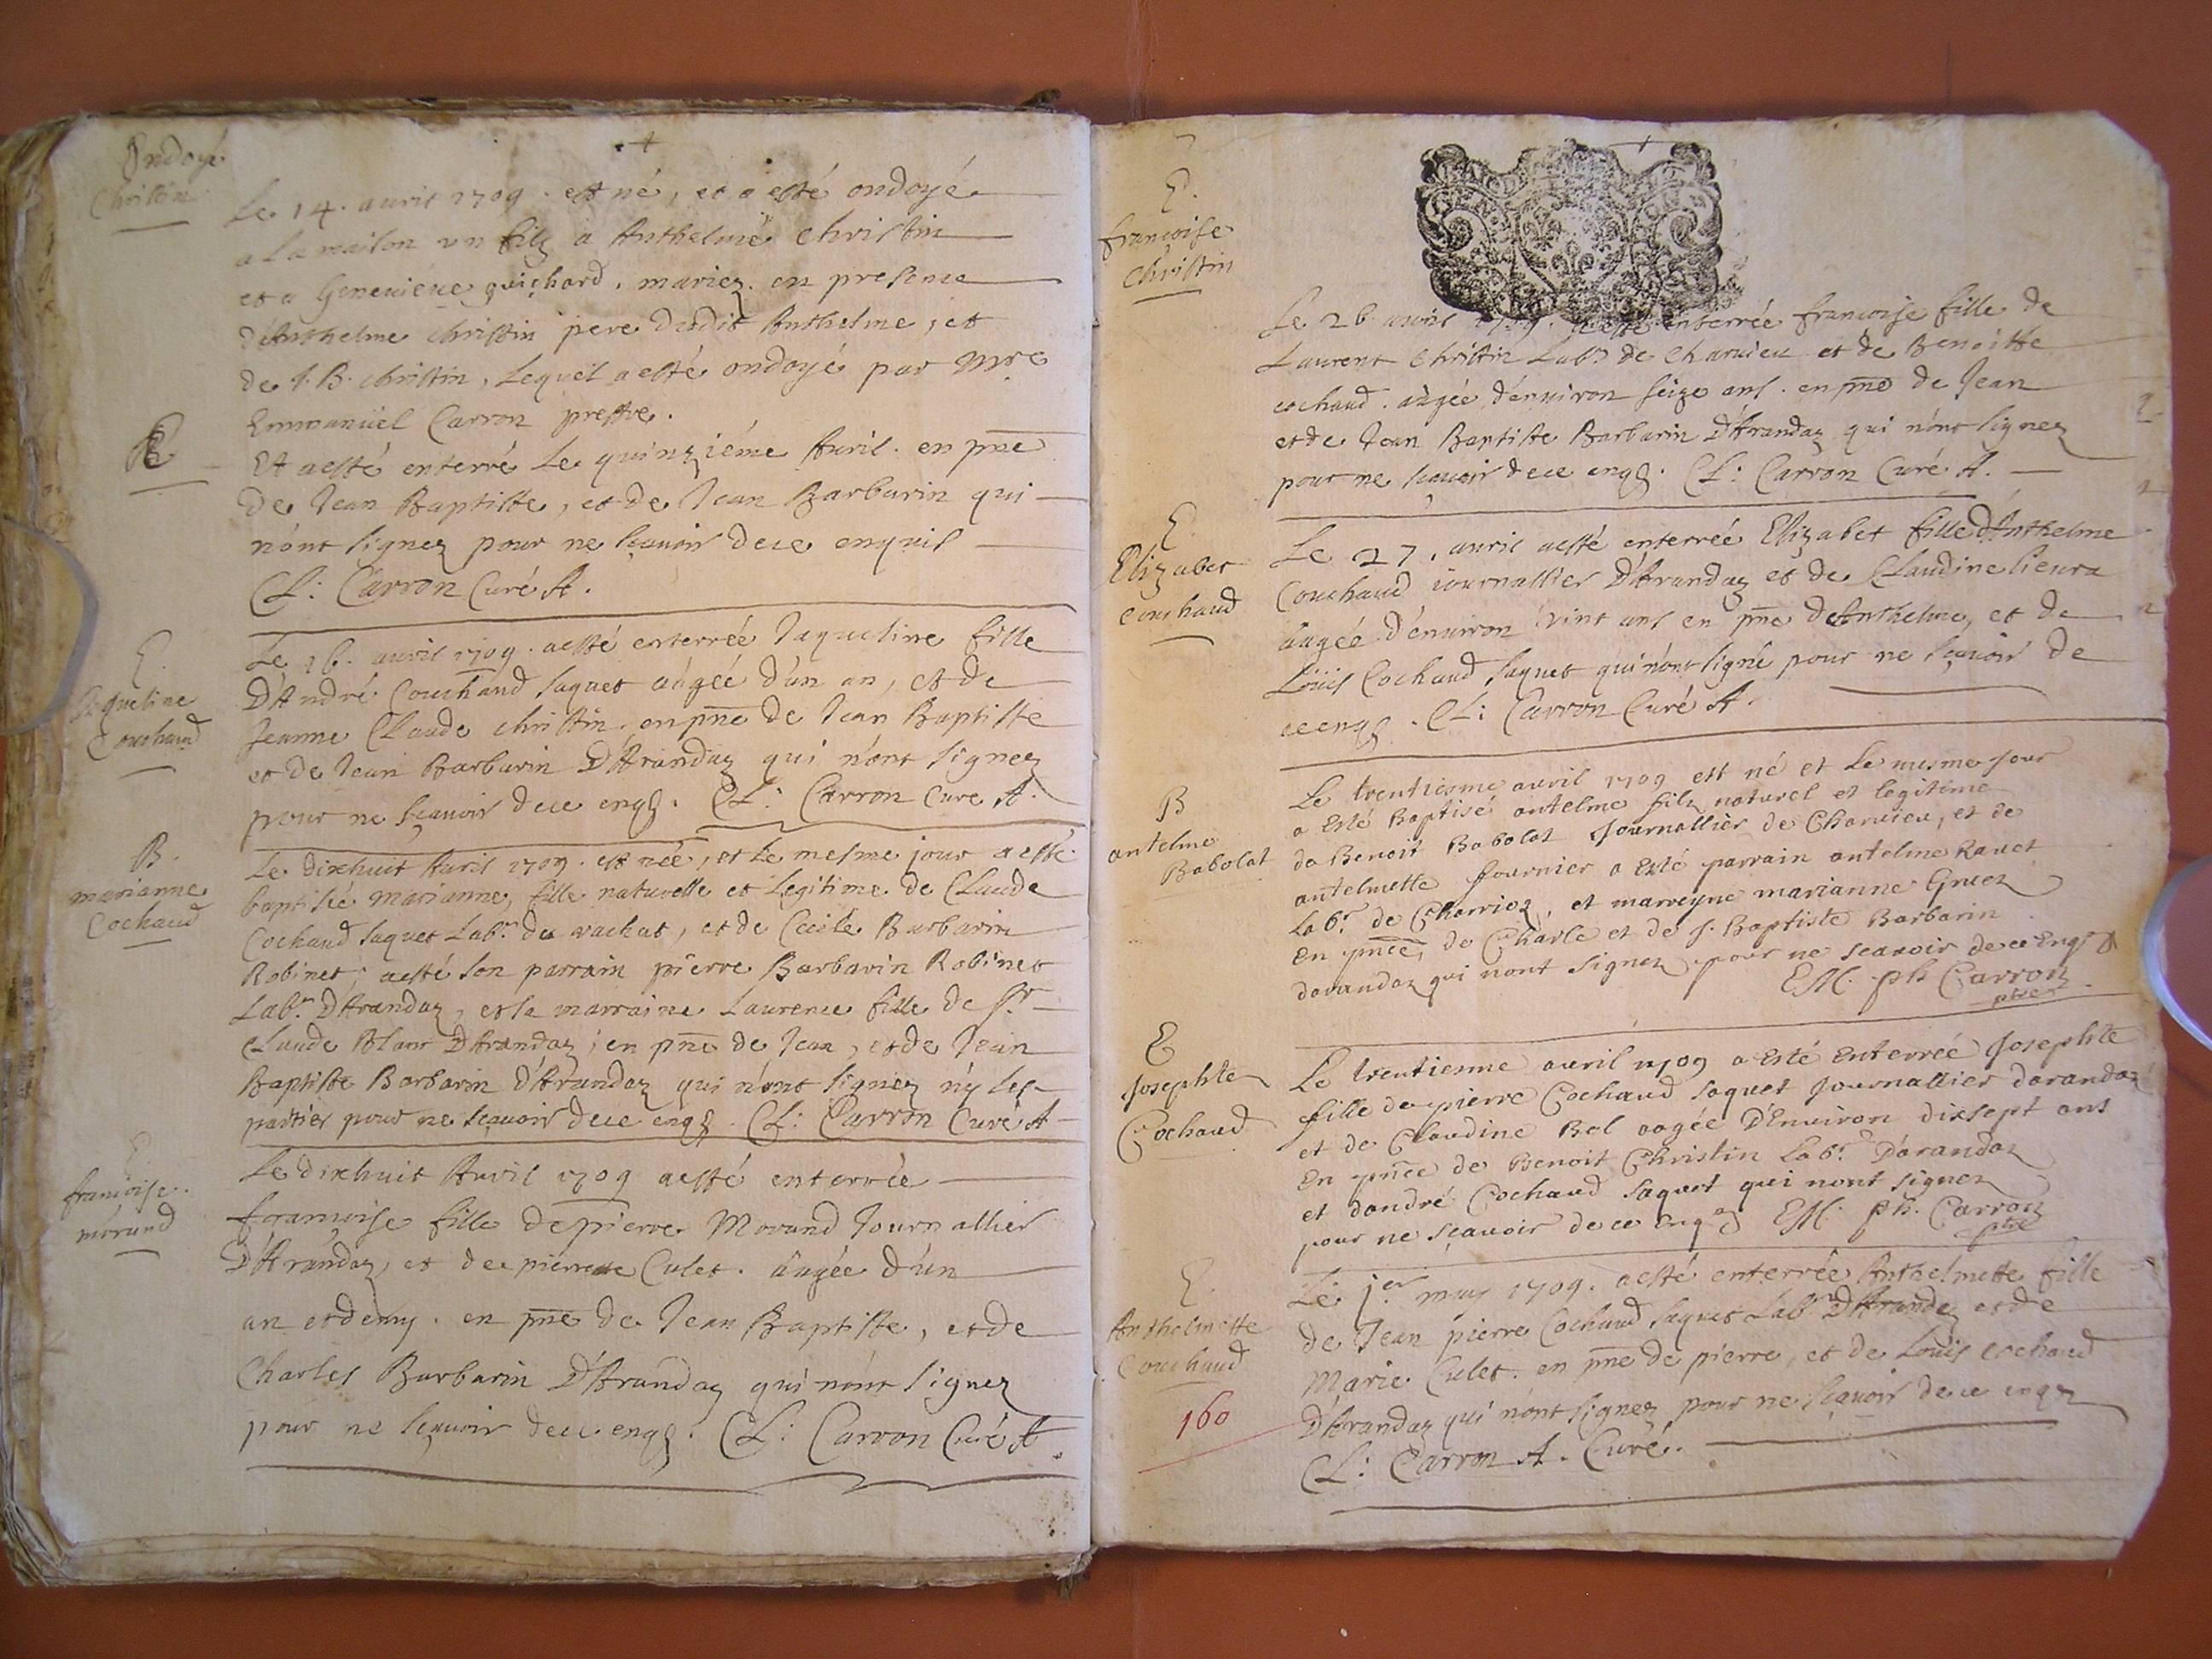 Ondoyé
Christin
Le 14. auril 1709. est né, et a esté ondoyé
a La maison un filz a Anthelme Christin
et a Geneuieue guichard, mariez. en presence
d'Anthelme christin pere dudit Anthelme, et
de J. B. christin, Lequel a esté ondoyé par Mre
Emmanüel Carron prestre.
E
Et a esté enterré Le quinziéme Auril. en pñe
de Jean Baptiste, et de Jean Barbarin qui
n'ont signez pour ne sçauoir de ce enquis
CL: Carron Curé A.
E.
Jaqueline
Couchaud
Le 16. auril 1709. a esté enterrée Jaqueline fille
D'André Couchaud saquet aâgée d'un an, et de
Jeanne CLaude christin, en pñe de Jean Baptiste
et de Jean Barbarin D'Arandaz qui n'ont signez
pour ne sçauoir de ce enqs. CL: Carron Cure A.
B.
marianne
Cochaud
Le dixhuit Auril 1709. est née, et Le mesme jour a esté
baptisée Marianne, fille naturelle et Legitime de CLaude
Cochaud saquet Labr. du vachat, et de Cecile Barbarin
Robinet; a esté son parrain pierre Barbarin Robinet
Labr. D'Arandaz, et la marraine Laurence fille de sr.
CLaude Blanc D'Arandaz; en pñe de Jean, et de Jean
Baptiste Barbarin d'Arandaz qui n'ont signez n'y les
parties pour ne sçauoir de ce enqs. CL: Carron Curé A
E
francoise
morand
Le dixhuit Auril 1709 a esté enterrée
francoise fille de pierre Morand Journallier
D'Arandaz, et de pierrette Culet. aâgée d'un
an et demy. en pñe de Jean Baptiste, et de
Charles Barbarin D'Arandaz qui n'ont signez
pour ne sçauoir de ce enqs. CL: Carron Curé A.
E.
francoise
Christin
Le 26 auril 1709. a esté enterrée francoise fille de
Laurent Christin Labr. de Charuieu et de Benoitte
cochaud. aâgée d'enuiron seize ans. en pñe de Jean
et de Jean Baptiste Barbarin D'Arandaz qui n'ont signez
pour ne sçauoir de ce enqs. CL: Carron Curé A.
E.
Elizabet
couchaud
Le 27. auril a esté enterrée Elizabet fille d'Anthelme
Couchaud iournallier D'Arandaz et de CLaudine
aâgée d'enuiron vint ans en pñe de Anthelme, et de
Loüis Cochaud saquet qui n'ont signé pour ne sçauoir de
ce enqs. CL: Carron Curé A.
B
antelme
Babolat
Le trentiesme auril 1709 est né et Le mesme Jour
a Esté Baptisé antelme filz naturel et legitime
de Benoit Babolat Journallier de Charuieu, et de
antelmette fournier a Esté parrain antelme Rauet
Labr. de Charrioz, et marreyne marianne Gruez
En pñce, de Charle et de J. Baptiste Barbarin
darandaz qui nont signez pour ne scauoir de ce Enqs
EM. ph Carron
ptre
E
Josephte
Cochaud
Le trentienne auril 1709 a Esté Enterrée Josephte
fille de pierre Cochaud saquet Journallier darandaz
et de Claudine Bel aagée D'Enuiron dixsept ans
En pñce de Benoit Christin Labr. Darandaz
et dandré Cochaud saquet qui nont signez
pour ne sçauoir de ce Enqs EM. ph. Carron
ptre
E.
Anthelmette
Couchaud
160
Le 1er may 1709. a esté enterrée Anthelmette fille
de Jean pierre Cochaud saquet Labr D'Arandaz et de
Marie Culet. en pñe de pierre, et de Louis cochaud
D'Arandaz qui n'ont signez pour ne sçauoir de ce enqz
CL: Carron A. Curé.